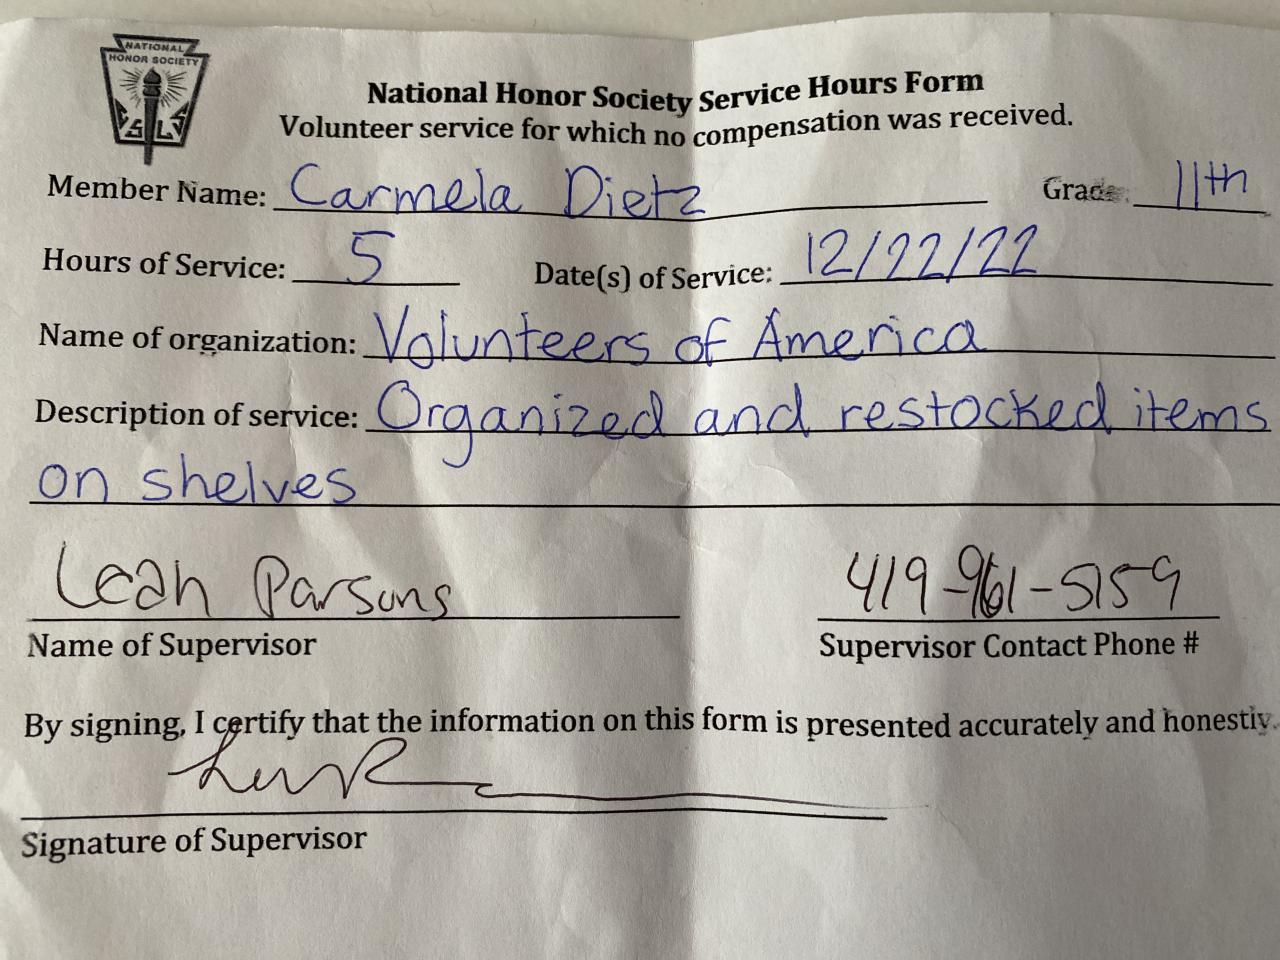 NATIONAL
HONOR SOCIETY
S L
National Honor Society Service Hours Form
Volunteer service for which no compensation was received.
Member Name: Carmela Dietz Grade: 11th
Hours of Service: 5 Date(s) of Service: 12/22/22
Name of organization: Volunteers of America
Description of service: Organized and restocked items
on shelves
Leah Parsons 419-961-5159
Name of Supervisor Supervisor Contact Phone #
By signing, I certify that the information on this form is presented accurately and honestly.
Signature of Supervisor